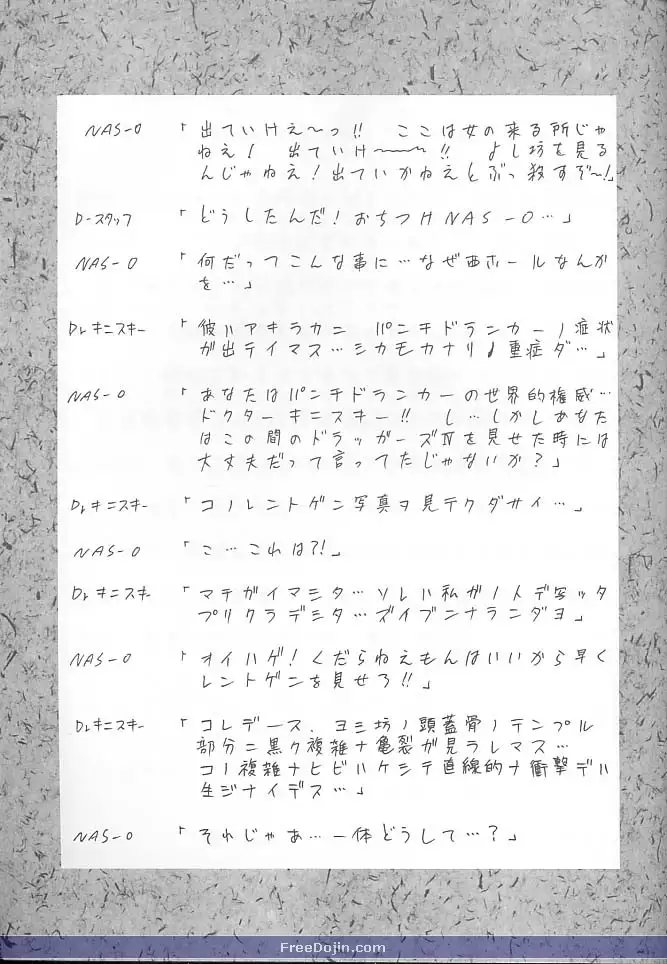 NAS-O 「出ていけえ〜っ!! ここは女の来る所じゃ
ねえ! 出ていけ〜〜〜!! よし坊を見る
んじゃねえ!出ていかねえとぶっ殺すぞ〜!」
D-スタッフ 「どうしたんだ!おちつけNAS-O…」
NAS-O 「何だってこんな事に…なぜ西ホールなんか
を…」
Dr.キニスキー 「彼ハアキラカニ パンチドランカーノ症状
が出テイマス…シカモカナリノ重症ダ…」
NAS-O 「あなたはパンチドランカーの世界的権威…
ドクターキニスキー!! し…しかしあなた
はこの間のドラッガーズⅣを見せた時には
大丈夫だって言ってたじゃないか?」
Dr.キニスキー 「コノレントゲン写真ヲ見テクダサイ…」
NAS-O 「こ…これは?!」
Dr.キニスキー 「マチガイマシタ…ソレハ私ガ1人デ写ッタ
プリクラデシタ…ズイブンナランダヨ」
NAS-O 「オイハゲ!くだらねえもんはいいから早く
レントゲンを見せろ!!」
Dr.キニスキー 「コレデース.ヨシ坊ノ頭蓋骨ノテンプル
部分ニ黒ク複雑ナ亀裂が見ラレマス…
コノ複雑ナヒビハケシテ直線的ナ衝撃デハ
生ジナイデス…」
NAS-O 「それじゃあ…一体どうして…?」
FreeDojin.com